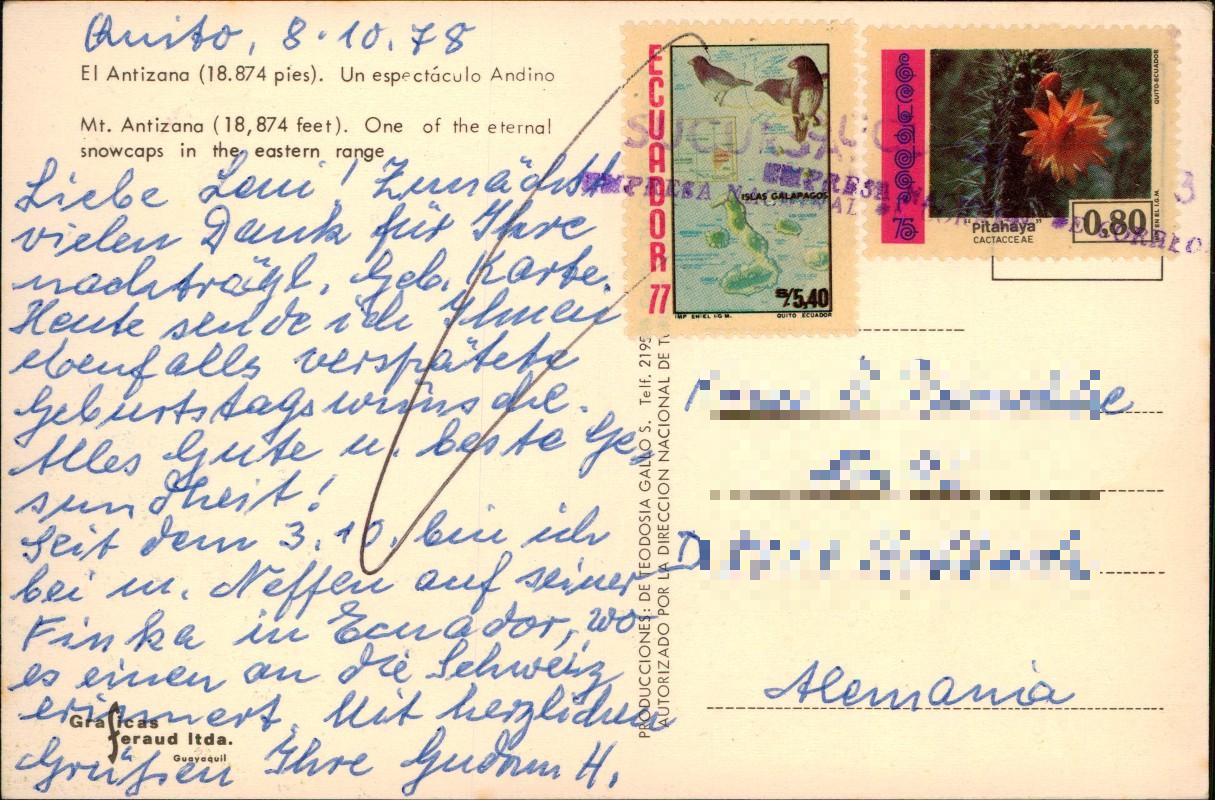 Quito, 8.10.78
El Antizana (18.874 pies). Un espectáculo Andino
Mt. Antizana (18,874 feet). One of the eternal
snowcaps in the eastern range
Liebe Leni! Zunächst
vielen Dank für Ihre
nachträgl. Geb. Karte.
Heute sende ich Ihnen
ebenfalls verspätete
Geburtstagswünsche.
Alles Gute u. beste Ge-
sundheit!
Seit dem 3.10. bin ich
bei m. Neffen auf seiner
Finka in Ecuador, wo
es einen an die Schweiz
erinnert. Mit herzlichen
Grüßen Ihre Gudrun H.
Graficas
feraud ltda.
Guayaquil
PRODUCCIONES: DE TEODOSIA GALLO S. Telf. 2195
AUTORIZADO POR LA DIRECCION NACIONAL DE TU
ECUADOR 77
ISLAS GALAPAGOS
S/5,40
IMP EN EL I.G.M. QUITO ECUADOR
ecuador
75
QUITO-ECUADOR
"Pitahaya"
CACTACCEAE
0,80
EN EL I.G.M.
SUCURSAL
EMPRESA NACIONAL
EMPRESA NA
DE CORREO
3
D
Alemania